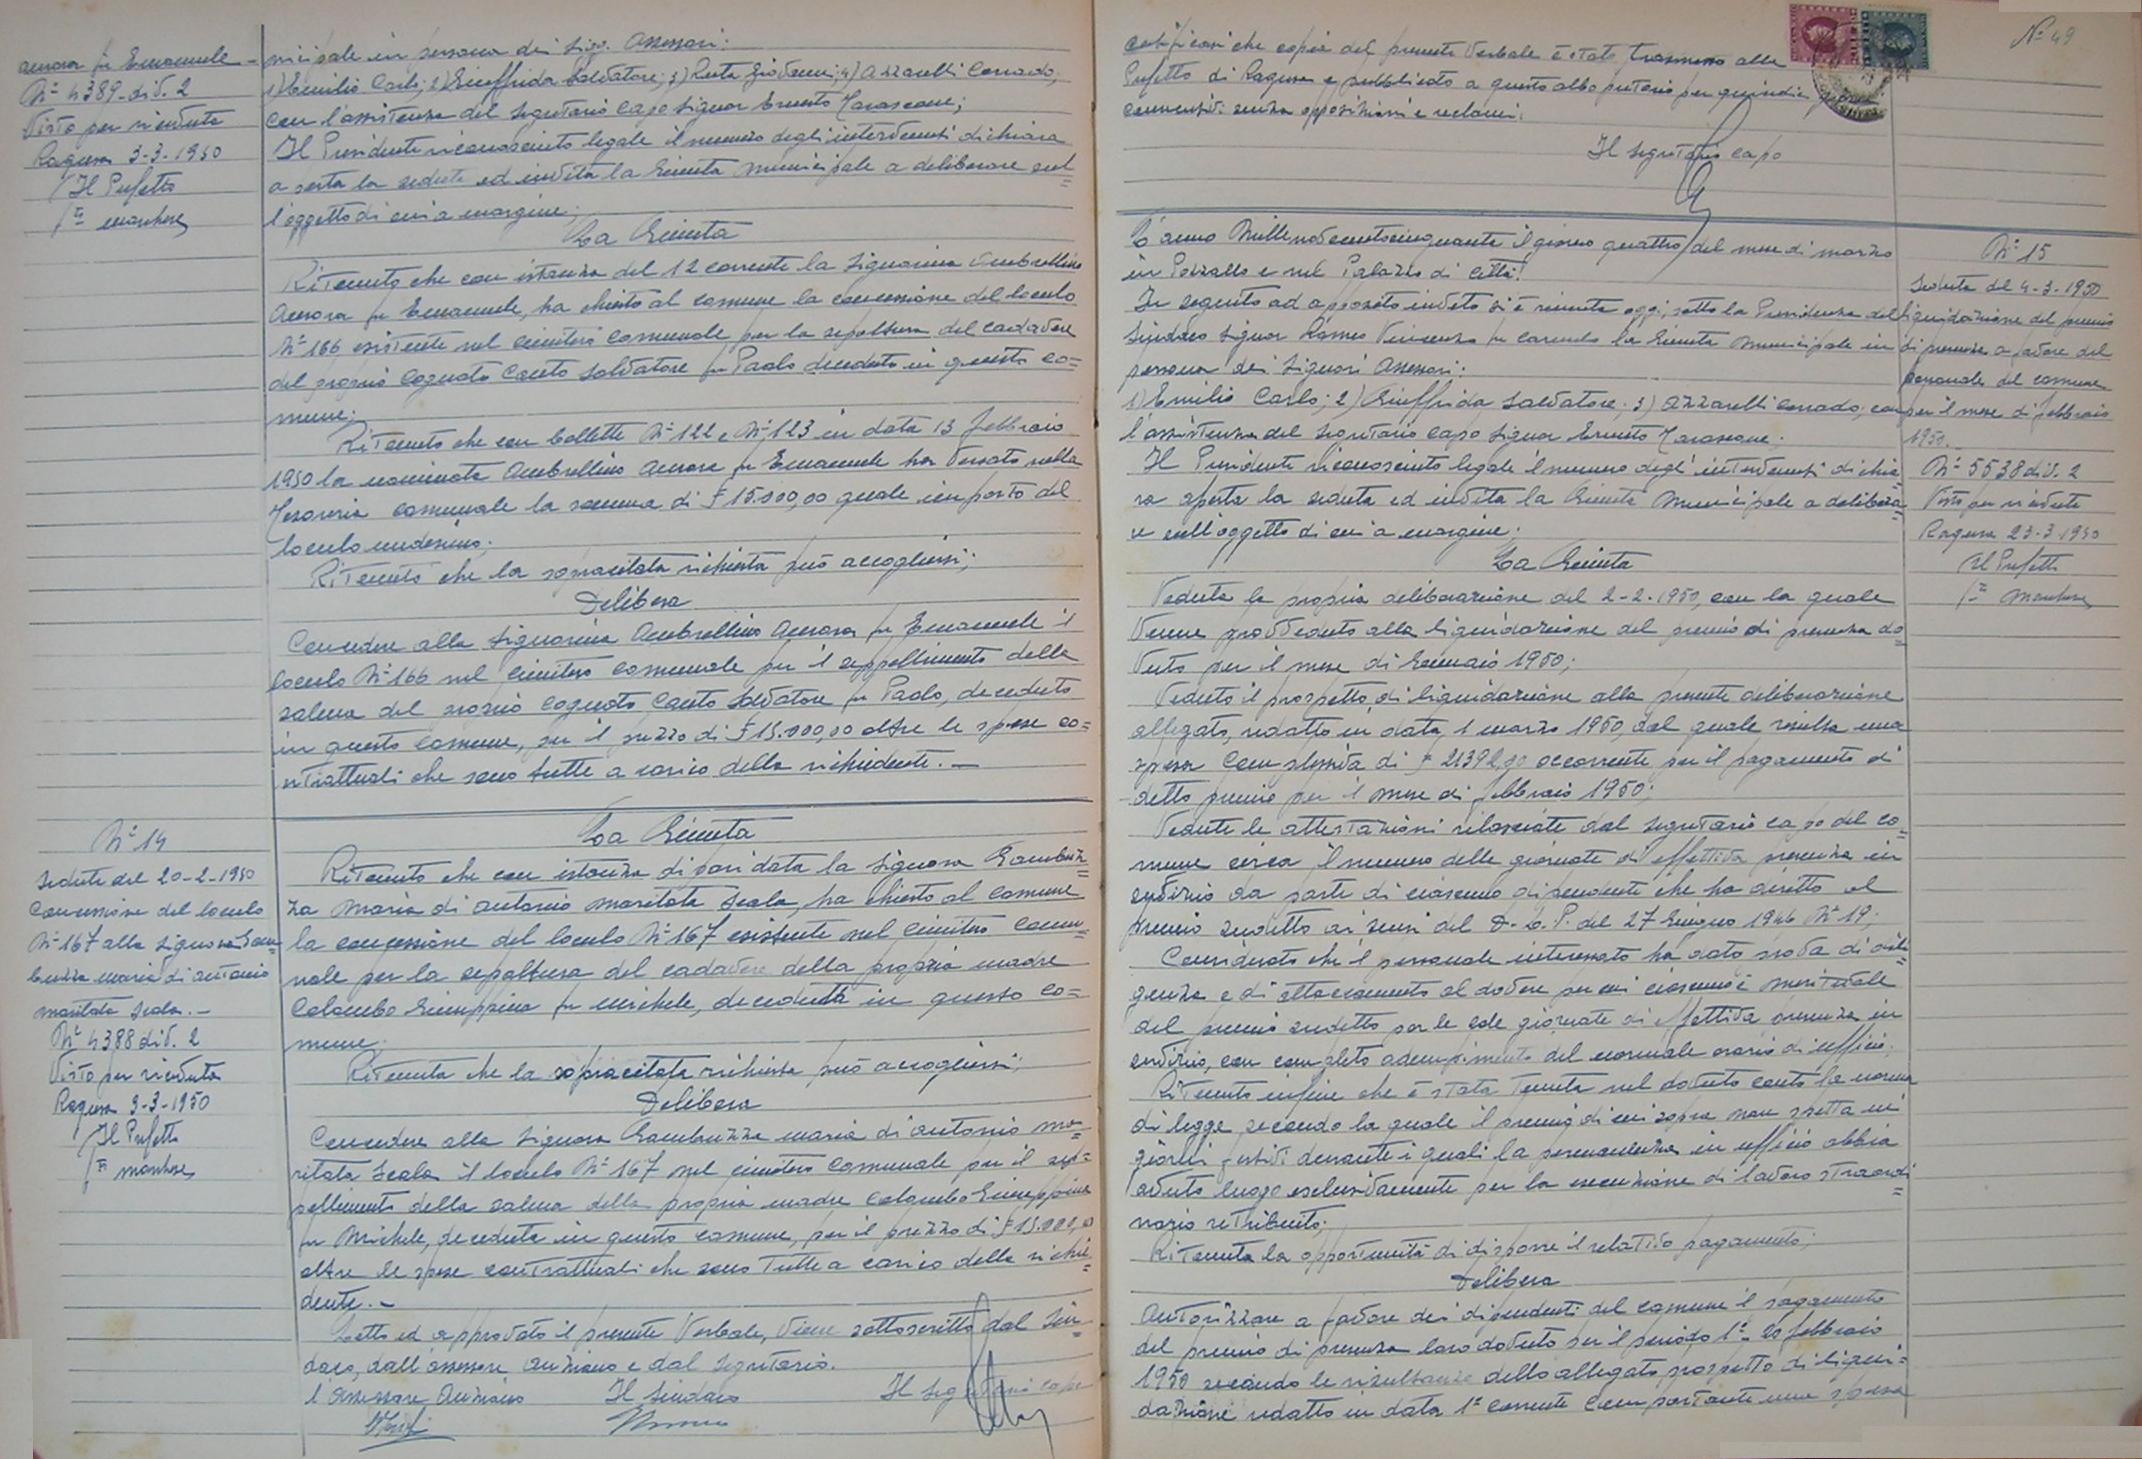 Aurora fu Emanuele
N° 4389 div. 2
Visto per ricevuta
Ragusa 3-3-1950
Il Prefetto
nicipale in persona dei Sigg. Assessori:
1) Emilio Carlo; 2) Giuffrida Salvatore; 3) Ruta Giovanni; 4) Azzarelli Corrado;
con l'assistenza del Segretario Capo Signor Ernesto
Il Presidente riconosciuto legale il numero degli intervenuti dichiara
aperta la seduta ed invita la Giunta Municipale a deliberare sul=
l'oggetto di cui a margine;
La Giunta
Ritenuto che con istanza del 12 corrente la Signorina Ambrellino
Aurora fu Emanuele, ha chiesto al comune la concessione del loculo
N° 166 esistente nel cimitero comunale per la sepoltura del cadavere
del proprio cognato Causo Salvatore fu Paolo deceduto in questo co=
mune;
Ritenuto che con bollette N° 122 e N° 123 in data 13 febbraio
1950 la nominata Ambrellino Aurora fu Emanuele ha versato nella
Tesoreria comunale la somma di £ 15.000,00 quale importo del
loculo medesimo;
Ritenuto che la sopracitata richiesta può accogliersi;
Delibera
Concedere alla Signorina Ambrellino Aurora fu Emanuele il
loculo N° 166 nel cimitero comunale per il seppellimento della
salma del proprio cognato Causo Salvatore fu Paolo, deceduto
in questo comune, per il prezzo di £ 15.000,00 oltre le spese co=
ntrattuali che sono tutte a carico della richiedente.—
N° 14
Seduta del 20-2-1950
Concessione del loculo
N° 167 alla Signora Gam=
buzza Maria di Antonio
maritata Scala.—
N° 4388 div. 2
Visto per ricevuta
Ragusa 3-3-1950
Il Prefetto
La Giunta
Ritenuto che con istanza di pari data la Signora Gambuz=
za Maria di Antonio maritata Scala, ha chiesto al comune
la concessione del loculo N° 167 esistente nel cimitero comu=
nale per la sepoltura del cadavere della propria madre
Colombo Giuseppina fu Michele, deceduta in questo co=
mune;
Ritenuta che la sopracitata richiesta può accogliersi;
Delibera
Concedere alla Signora Gambuzza Maria di Antonio ma=
ritata Scala il loculo N° 167 nel cimitero comunale per il sep=
pellimento della salma della propria madre Colombo Giuseppina
fu Michele, deceduta in questo comune, per il prezzo di £ 15.000,00
oltre le spese contrattuali che sono tutte a carico della richie=
dente.—
Letto ed approvato il presente Verbale, viene sottoscritto dal Sin=
daco, dall'assessore anziano e dal Segretario.
l'Assessore Anziano Il Sindaco Il Segretario capo
N° 49
Certificasi che copia del presente Verbale è stata trasmessa alla
Prefetto di Ragusa e pubblicato a questo albo pretorio per quindici giorni
consecutivi senza opposizioni e reclami.
Il Segretario capo
L'anno Millenovecentocinquanta il giorno quattro del mese di marzo
in Pozzallo e nel Palazzo di Città!
In seguito ad apposito invito si è riunita oggi, sotto la Presidenza del
Sindaco Signor Vincenzo fu Carmelo la Giunta Municipale in
persona dei Signori Assessori:
1) Emilio Carlo; 2) Giuffrida Salvatore; 3) Azzarelli Corrado; con
l'assistenza del Segretario Capo Signor Ernesto
Il Presidente riconosciuto legale il numero degli intervenuti dichia=
ra aperta la seduta ed invita la Giunta Municipale a delibera=
re sull'oggetto di cui a margine;
La Giunta
Veduta la propria deliberazione del 2-2-1950, con la quale
venne provveduto alla liquidazione del premio di presenza do=
vuto per il mese di Gennaio 1950;
Veduto il prospetto di liquidazione alla presente deliberazione
allegato, redatto in data 1 marzo 1950, dal quale risulta una
spesa complessiva di £ occorrente per il pagamento di
detto premio per il mese di febbraio 1950;
Vedute le attestazioni rilasciate dal Segretario capo del co=
mune circa il numero delle giornate di effettiva presenza in
servizio da parte di ciascuno dipendente che ha diritto al
premio suddetto ai sensi del D.L.P. del 27 Giugno 1946 N° 19;
Considerato che il personale interessato ha dato prova di dili=
genza e di attaccamento al dovere per cui ciascuno è meritevole
del premio suddetto per le sole giornate di effettiva presenza in
servizio, con completo adempimento del normale orario di ufficio;
Ritenuto infine che è stata tenuta nel dovuto conto la norma
di legge secondo la quale il premio di cui sopra non spetta nei
giorni festivi durante i quali la permanenza in ufficio abbia
avuto luogo esclusivamente per la esecuzione di lavoro straordi=
nario retribuito;
Ritenuta la opportunità di disporre il relativo pagamento;
Delibera
Autorizzare a favore dei dipendenti del comune il pagamento
del premio di presenza loro dovuto per il periodo 1° febbraio
1950 secondo le risultanze dello allegato prospetto di liqui=
dazione redatto in data 1° corrente comportante una spesa
N° 15
Seduta del 4-3-1950
liquidazione del premio
di presenza a favore del
personale del comune
per il mese di febbraio
1950.
N° 5538 div. 2
Visto per ricevuta
Ragusa 23-3-1950
Il Prefetto